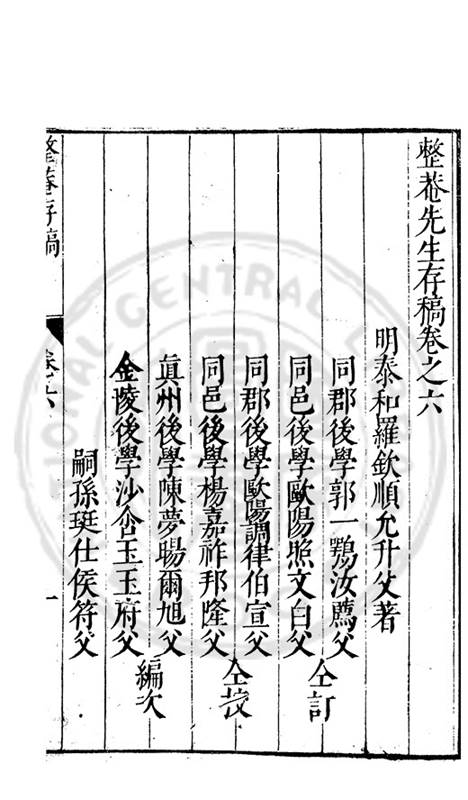 整菴先生存稿卷之六
明泰和羅欽順允升父著
同郡後學郭一鶚汝薦父
同邑後學歐陽照文白父
仝訂
同郡後學歐陽調律伯宣父
同邑後學楊嘉祚邦隆父
仝挍
真州後學陳夢暘爾旭父
金陵後學沙㑹玉王府父
編次
嗣孫珽仕侯符父
整菴存稿
卷六
一
NATIONAL CENTRAL